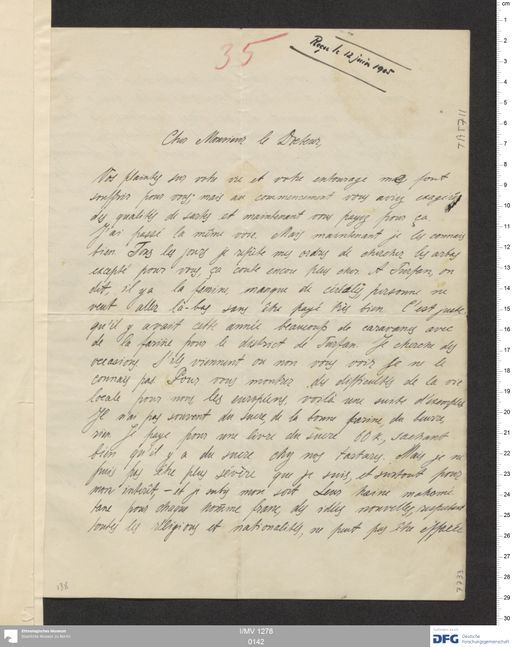 35
Reçu le 12 juin 1905
Cher Monsieur le Docteur,
Vos plaintes sur votre vie et votre entourage me font
souffrir pour vous; mais au commencement vous aviez exagéré
des qualités de sartes et maintenant vous payez pour ça.
J'ai passé la même voie. Mais maintenant je les connais
bien. Tous les jours je répète mes ordres de chercher les arbas
excepté pour vous, ça coute encore plus cher. A Turfan, on
dit, il y a la famine, manque de céréales, personne ne
veut aller là-bas sans être payé très bien. C'est juste,
qu'il y avait cette année beaucoup de caravanes avec
de la farine pour le district de Turfan. Je cherche des
occasions. S'ils viennent ou non vous voir je ne le
connais pas. Pour vous montrer des difficultés de la vie
locale pour nous les européens, voilà une suite d'exemples
Je n'ai pas souvent du sucre, de la bonne farine, du beurre,
rien. Je paye pour une livre du sucre 60 k, sachant
bien qu'il y a du sucre chez nos tartares. Mais je ne
puis pas être plus sévère que je suis, et surtout pour
mon intérêt, – et je subis mon sort. Leur haine mahomé
tane pour chaque homme franc, des idées nouvelles, respectant
toutes les religions et nationalités, ne peut pas être effacée
138
7233
Ethnologisches Museum
Staatliche Museen zu Berlin
I/MV 1278
0142
DFG Deutsche
Forschungsgemeinschaft
cm
1
2
3
4
5
6
7
8
9
10
11
12
13
14
15
16
17
18
19
20
21
22
23
24
25
26
27
28
29
30